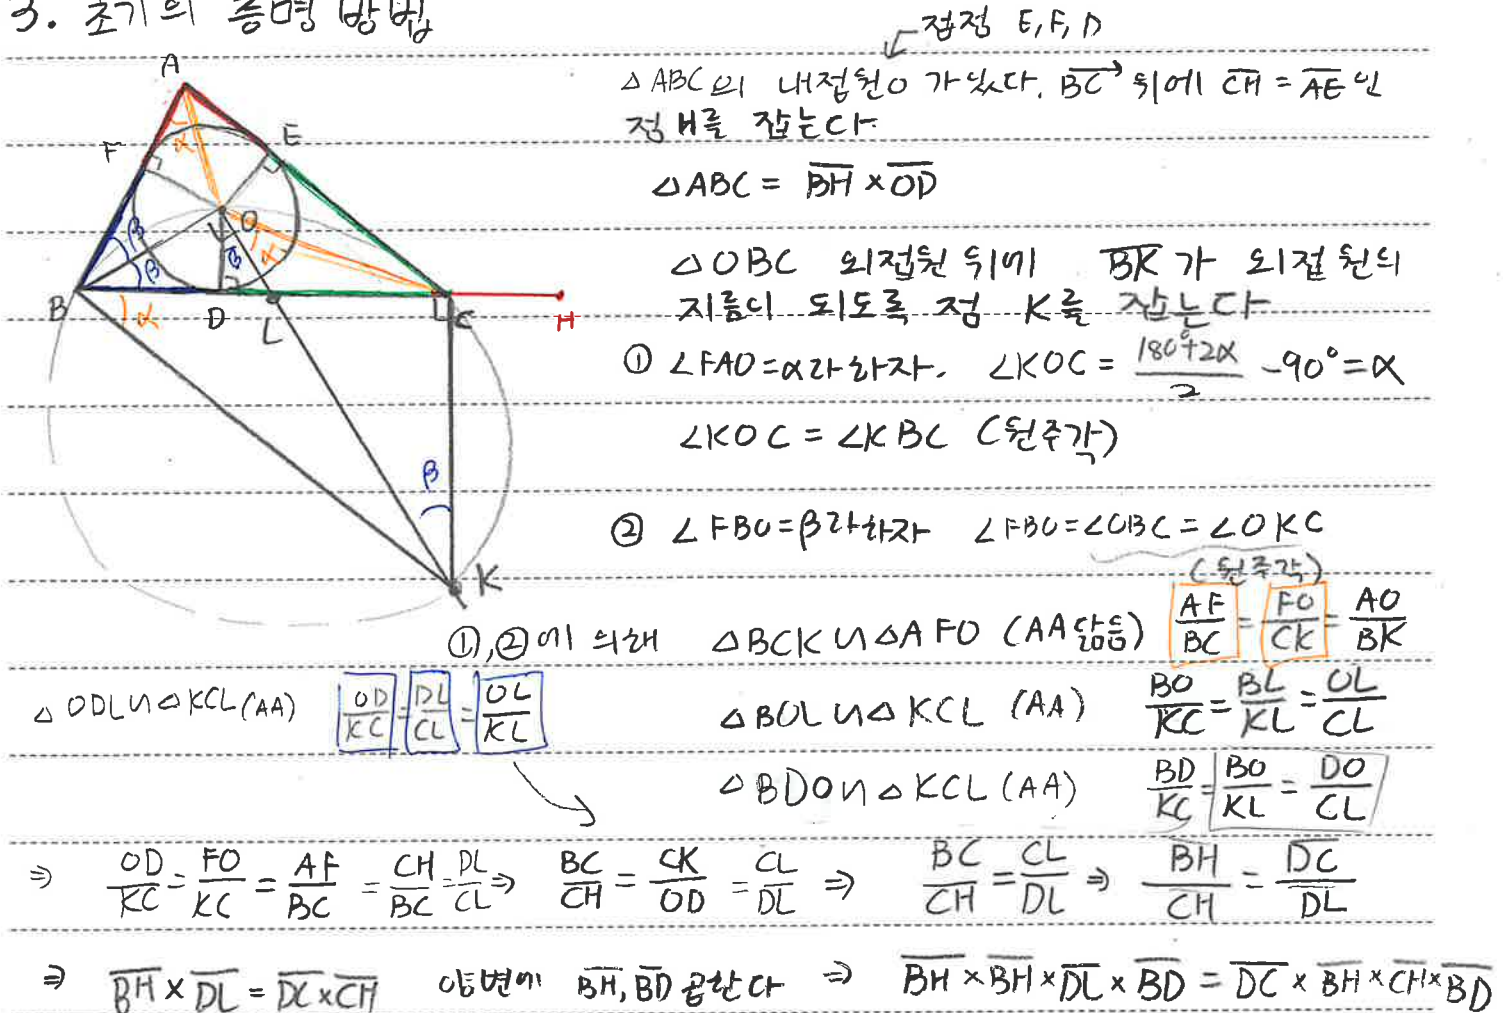 3. 초기의 증명 방법
접점 E, F, D
△ABC의 내접원O 가 있다. BC→ 위에 C̅H̅ = A̅E̅인
점 H를 잡는다.
△ABC = B̅H̅ × O̅D̅
△OBC 외접원 위에 B̅K̅가 외접원의
지름이 되도록 점 K를 잡는다
① ∠FAO=α라 하자. ∠KOC = (180°+2α)/2 - 90° = α
∠KOC = ∠KBC (원주각)
② ∠FBO=β라하자 ∠FBO=∠OBC = ∠OKC
(원주각)
①,②에 의해 △BCK ∽ △AFO (AA닮음) AF/BC = FO/CK = AO/BK
△ODL ∽ △KCL (AA) OD/KC = DL/CL = OL/KL
△BOL ∽ △KCL (AA) BO/KC = BL/KL = OL/CL
△BDO ∽ △KCL (AA) BD/KC = BO/KL = DO/CL
⇒ OD/KC = FO/KC = AF/BC = CH/BC = DL/CL ⇒ BC/CH = CK/OD = CL/DL ⇒ BC/CH = CL/DL ⇒ B̅H̅/C̅H̅ = D̅C̅/D̅L̅
⇒ B̅H̅ × D̅L̅ = D̅C̅ × C̅H̅ 양변에 B̅H̅, B̅D̅ 곱한다 ⇒ B̅H̅ × B̅H̅ × D̅L̅ × B̅D̅ = D̅C̅ × B̅H̅ × C̅H̅ × B̅D̅
A
F
E
α
O
β
β
β
α
B
α
D
L
C
H
β
K